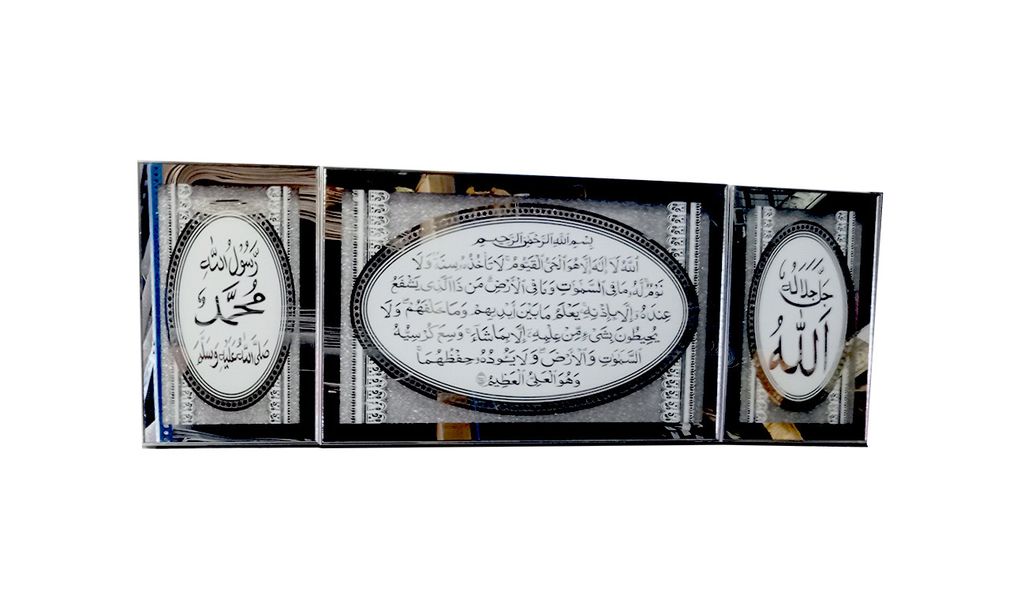 الله
جل جلاله
بسم الله الرحمن الرحيم
الله لا إله إلا هو الحي القيوم لا تأخذه سنة ولا
نوم له ما في السموت وما في الأرض من ذا الذي يشفع
عنده إلا بإذنه يعلم ما بين أيديهم وما خلفهم ولا
يحيطون بشيء من علمه إلا بما شاء وسع كرسيه
السموت والأرض ولا يئوده حفظهما
وهو العلي العظيم
رسول الله
محمد
صلى الله عليه وسلم